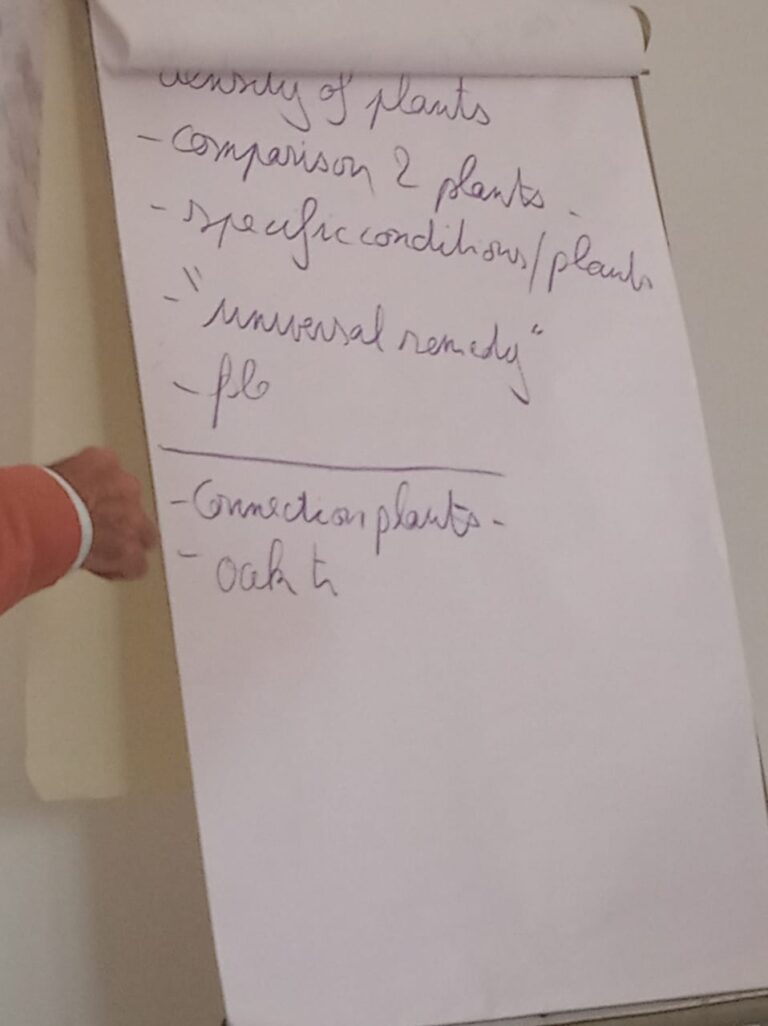 density of plants
- comparison 2 plants -
- specific conditions/plants
- "universal remedy"
- Connection plants -
- oak